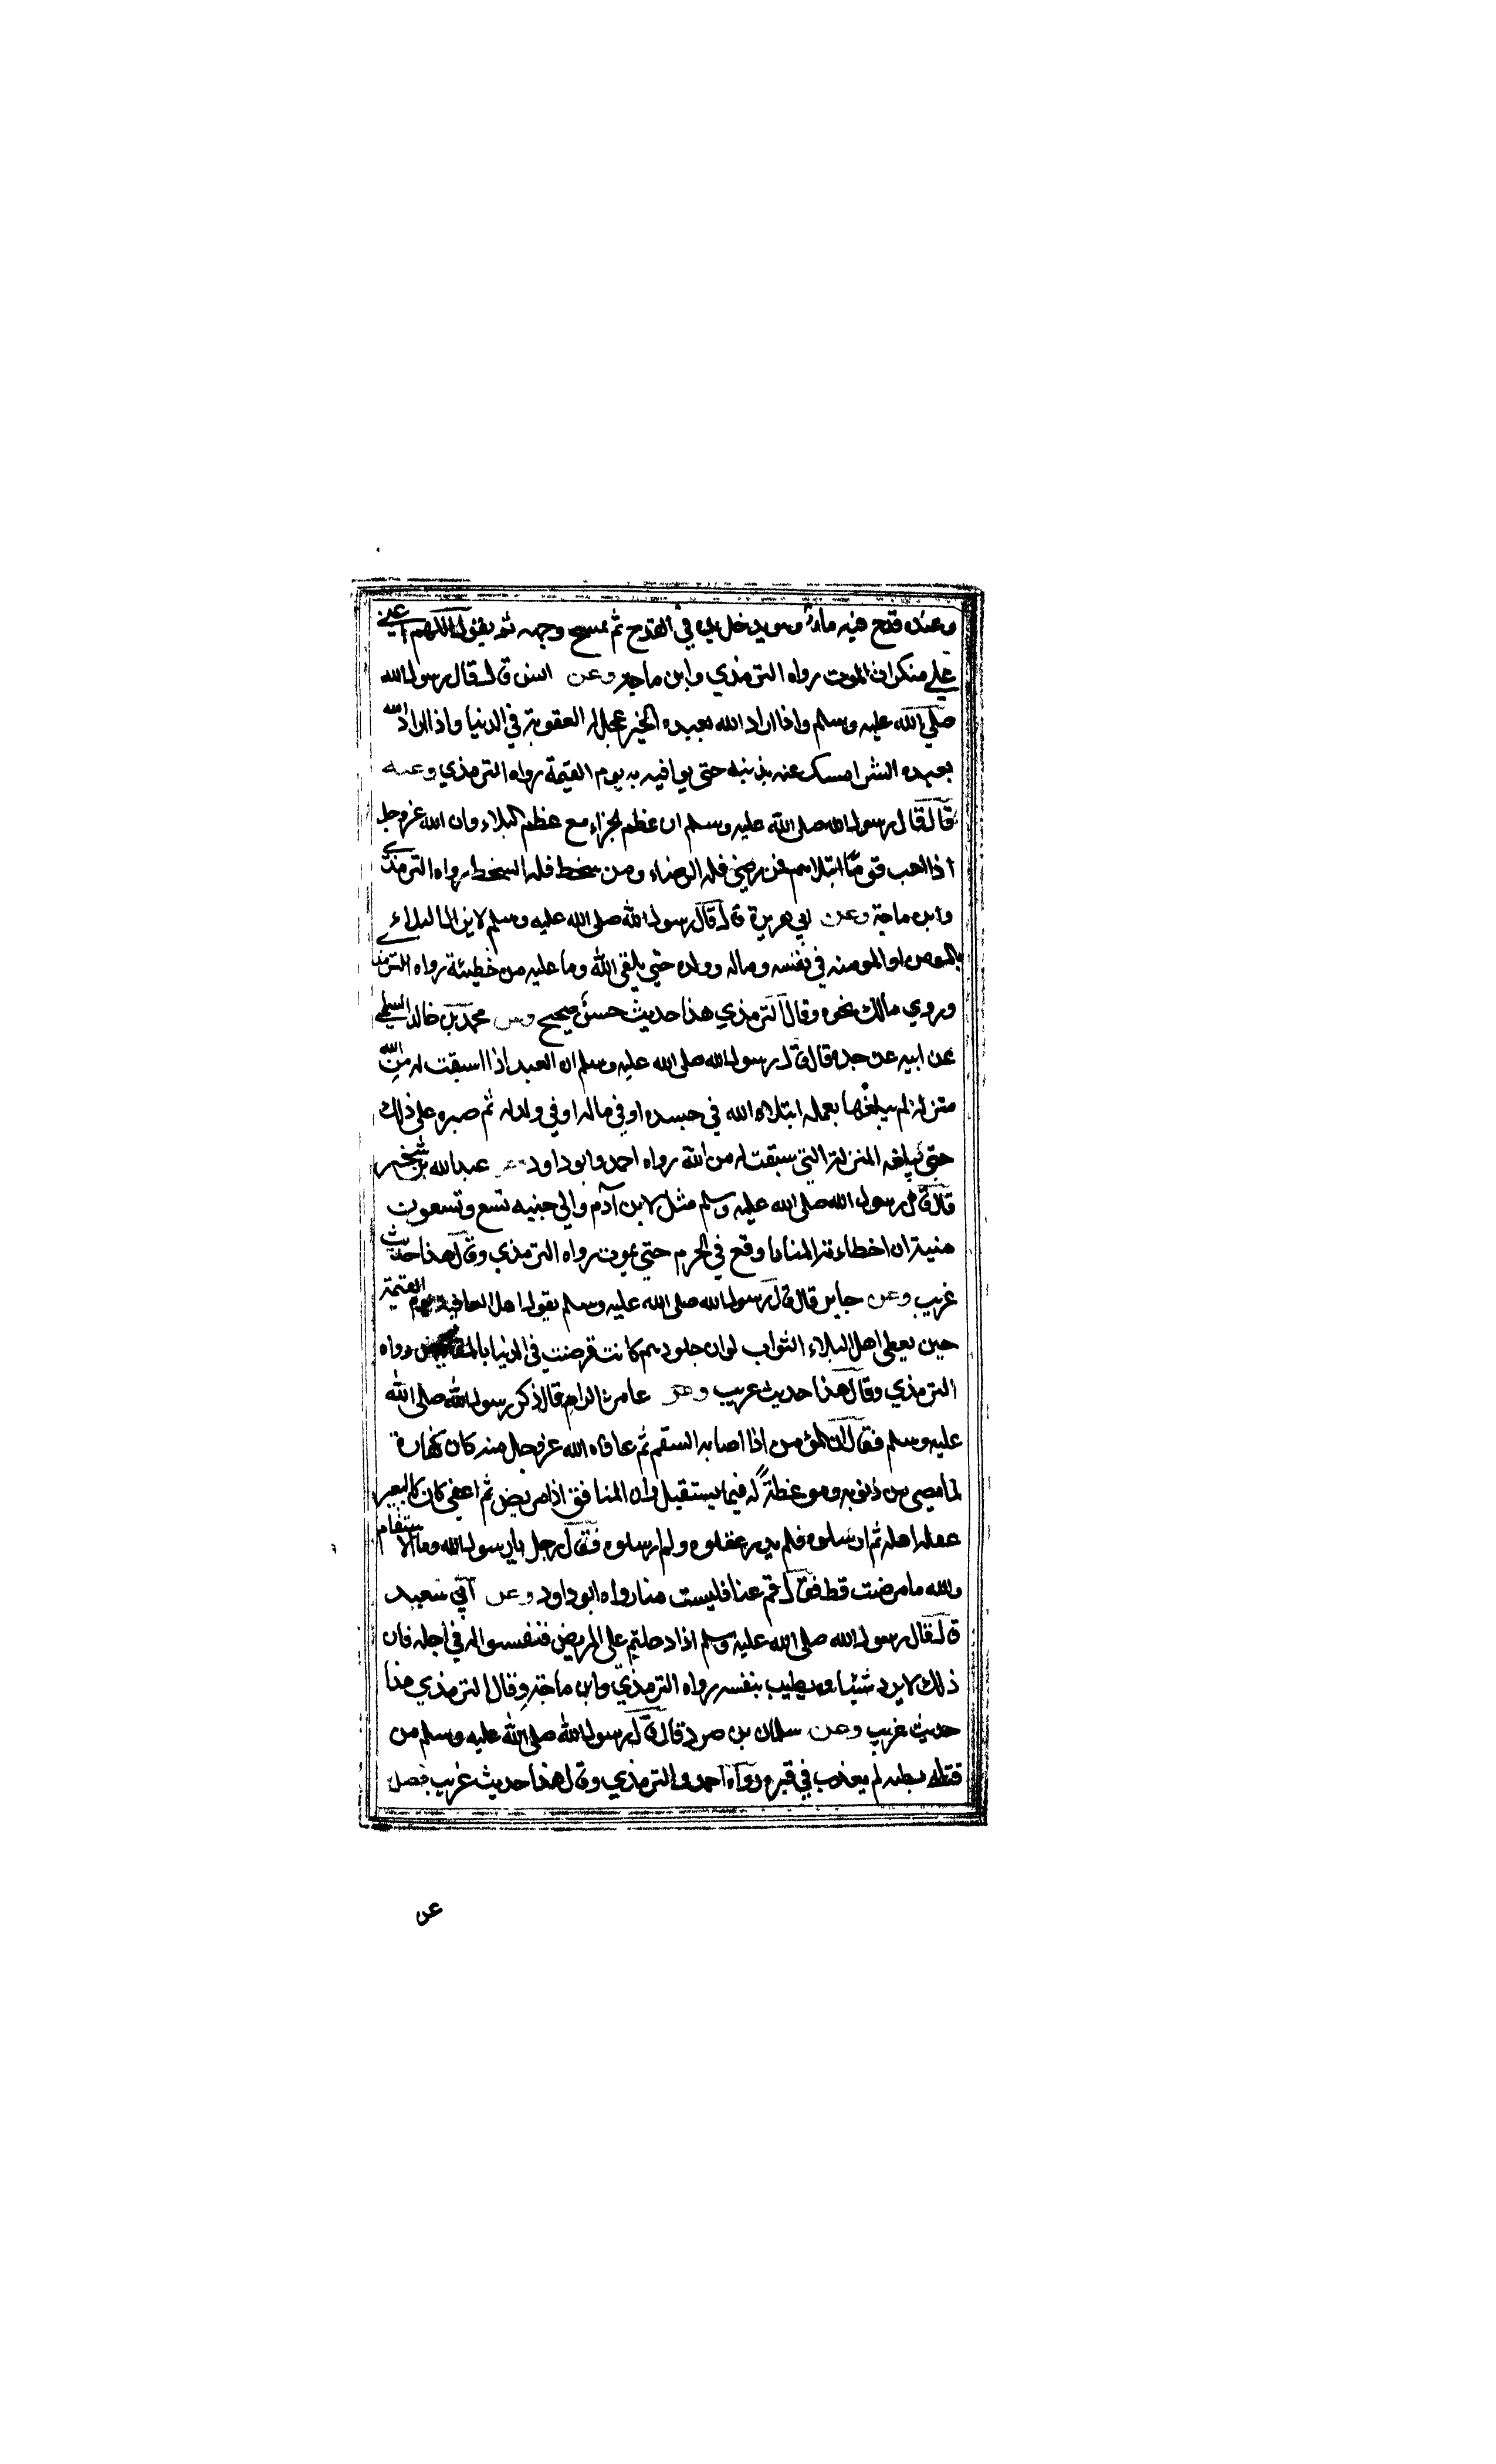 وعنده قدح فيه ماء وهو يدخل يده في القدح ثم يمسح وجهه ثم يقول اللهم اعني
علي منكرات الموت رواه الترمذي وابن ماجه وعن انس قال قال رسول الله
صلي الله عليه وسلم واذا اراد الله بعبده الخير عجل له العقوبة في الدنيا واذا اراد الله
بعبده الشر امسك عنه بذنبه حتى يوافيه به يوم القيمة رواه الترمذي وعنه
قال قال رسول الله صلى الله عليه وسلم ان عظم الجزاء مع عظم البلاء وان الله عز وجل
اذا احب قوما ابتلاهم فمن رضي فله الرضاء ومن سخط فله السخط رواه الترمذي
وابن ماجة وعن ابي هريرة قال قال رسول الله صلى الله عليه وسلم لا يزال البلاء
بالمومن او المومنه في نفسه وماله وولده حتي يلقى الله وما عليه من خطيئة رواه الترمذي
وروي مالك نحوه وقال الترمذي هذا حديث حسن صحيح وعن محمد بن خالد السلمي
عن ابيه عن جده قال قال رسول الله صلى الله عليه وسلم ان العبد اذا سبقت له من الله
منزلة لم يبلغها بعمله ابتلاه الله في جسده او في ماله او في ولده ثم صبره على ذلك
حتى يبلغه المنزلة التي سبقت له من الله رواه احمد وابو داود وعن عبد الله بن شخير
قال قال رسول الله صلى الله عليه وسلم مثل لابن آدم والي جنبيه تسع وتسعون
منية ان اخطاءته المنايا وقع في الهرم حتي يموت رواه الترمذي وقال هذا حديث
غريب وعن جابر قال قال رسول الله صلى الله عليه وسلم يقول اهل العافية يوم القيمة
حين يعطى اهل البلاء الثواب لو ان جلودهم كانت قرضت في الدنيا بالمقاريض رواه
الترمذي وقال هذا حديث غريب وعن عامر الرام قال ذكر رسول الله صلى الله
عليه وسلم فقال ان المؤمن اذا اصابه السقم ثم عافاه الله عز وجل منه كان كفارة
لما مضى من ذنوبه وموعظة له فيما يستقبل وان المنافق اذا مريض ثم اعفي كان كالبعير
عقله اهله ثم ارسلوه فلم يدر عقلوه ولم ارسلوه فقال رجل يا رسول الله وما الاسقام
والله ما مرضت قط فقال قم عنا فليست منا رواه ابو داود وعن ابي سعيد
قال قال رسول الله صلى الله عليه وسلم اذا دخلتم على المريض فنفسوا له في اجله فان
ذلك لا يرد شيئا ويطيب بنفسه رواه الترمذي وابن ماجة وقال الترمذي هذا
حديث غريب وعن سلمان بن صرد قال قال رسول الله صلى الله عليه وسلم من
قتله بطنه لم يعذب في قبره رواه احمد والترمذي وقال هذا حديث غريب فصل
عن